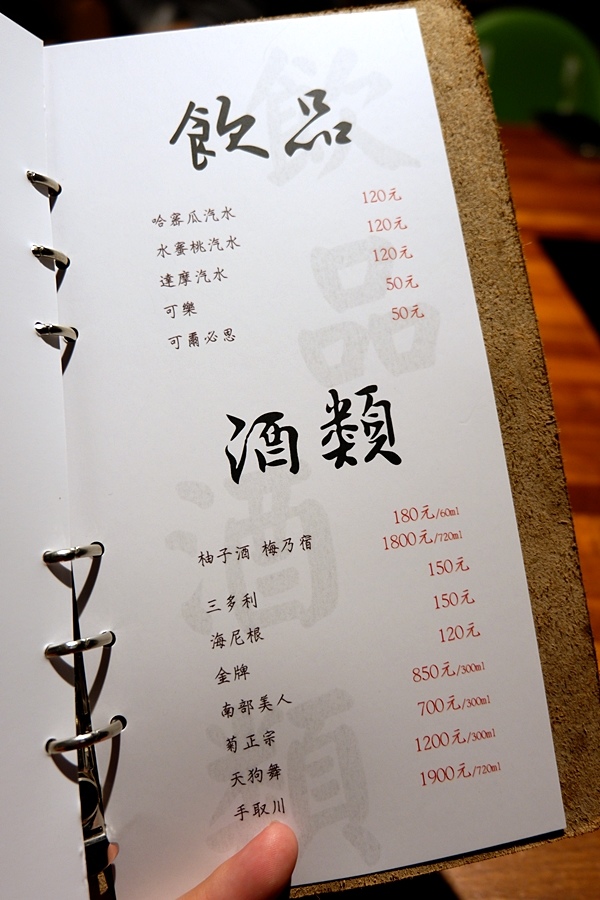 飲品
哈蜜瓜汽水 120元
水蜜桃汽水 120元
達摩汽水 120元
可樂 50元
可爾必思 50元
酒類
柚子酒 梅乃宿 180元/60ml
1800元/720ml
三多利 150元
海尼根 150元
金牌 120元
南部美人 850元/300ml
菊正宗 700元/300ml
天狗舞 1200元/300ml
手取川 1900元/720ml